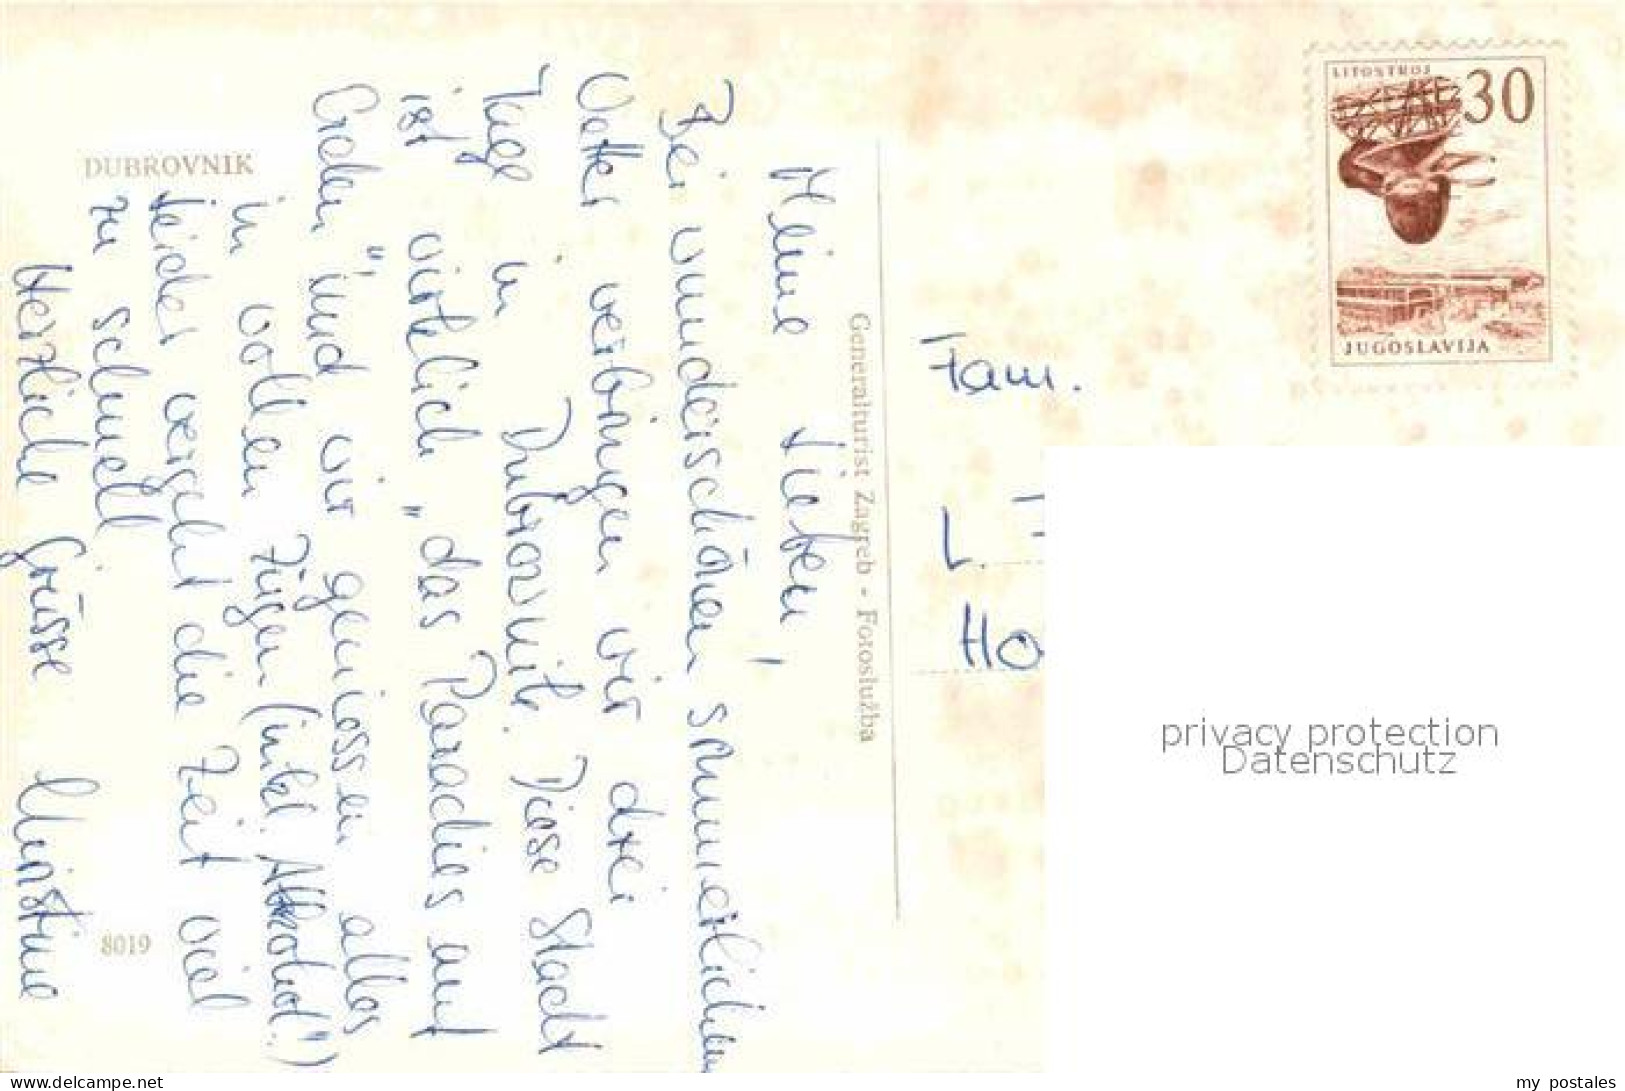 DUBROVNIK
Meine Lieben,
Bei wunderschönen sommerlichen
Wetter verbringen wir drei
Tage in Dubrovnik. Diese Stadt
ist wirklich "das Paradies auf
Erden" und wir geniessen alles
in vollen Zügen (inkl. Alkohol!)
Leider vergeht die Zeit viel
zu schnell
Herzliche Grüsse Christine
8019
Generalturist Zagreb - Fotoslužba
LITOSTROJ
30
JUGOSLAVIJA
Fam.
L.
HO
privacy protection
Datenschutz
www.delcampe.net
my_postales